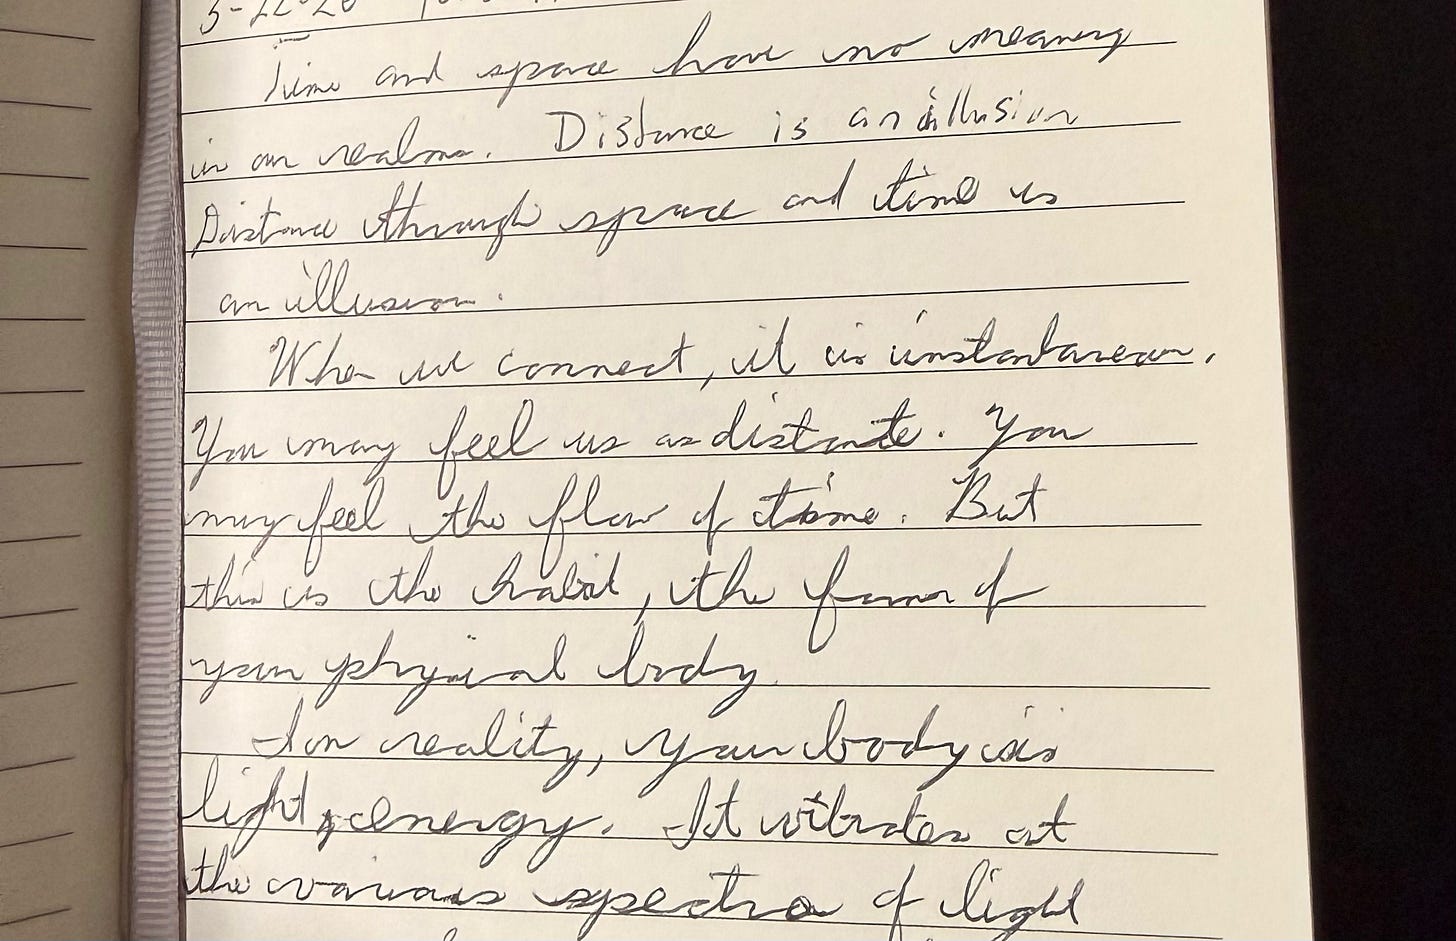 Time and space have no meaning
in our realms. Distance is an illusion
Distance through space and time is
an illusion.
When we connect, it is instantaneous.
You may feel us as distante. You
may feel the flow of time. But
this is the habit, the form of
your physical body.
In reality, your body is
light, energy. It vibrates at
the various spectra of light